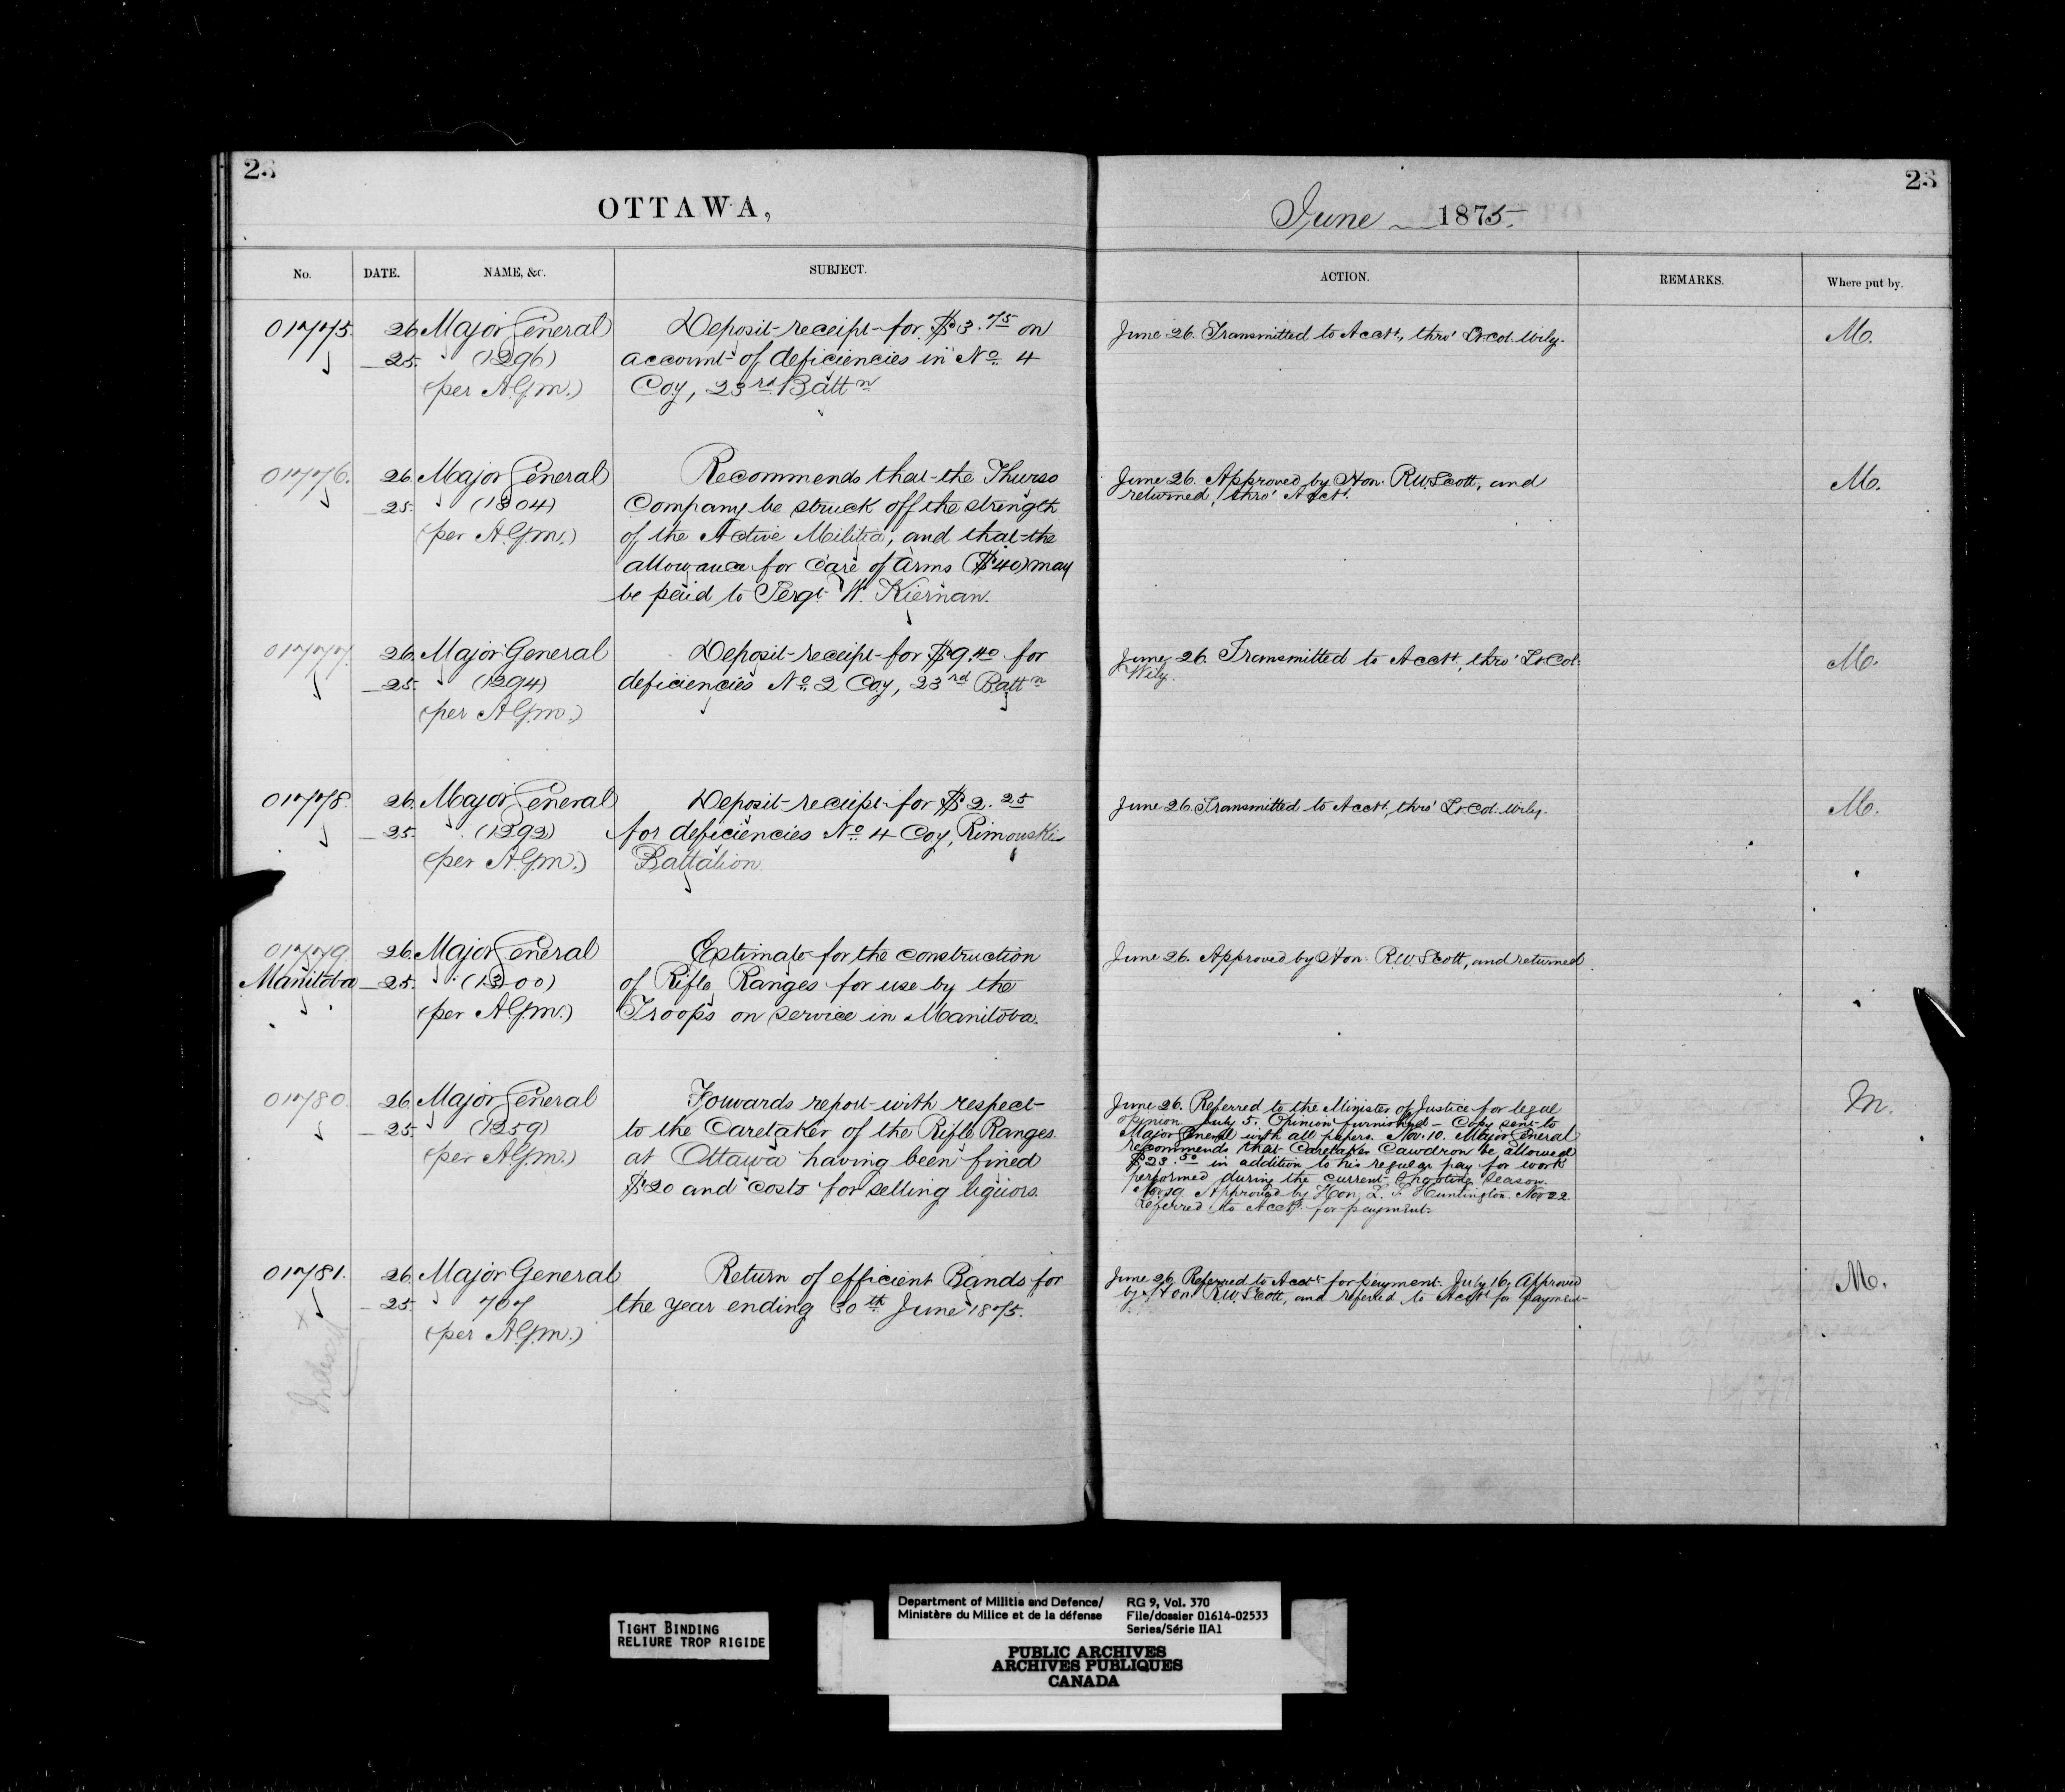 23
OTTAWA,
No.
DATE.
NAME, &c.
SUBJECT.
01775.
26 Major General
Deposit receipt for $3.75 on
25. " (1296)
account of deficiencies in No. 4
(per A.G.m.)
Coy, 23rd Battn
01776.
26. Major General
Recommends that the Thurso
25. " (1304)
Company be struck off the strength
(per A.G.m.)
of the Active Militia, and that the
allowance for Care of Arms ($40) may
be paid to Sergt. W. Kiernan.
01777.
26. Major General
Deposit receipt for $9.40 for
25. " (1294)
deficiencies No. 2 Coy, 23rd Battn
(per A.G.m.)
01778.
26. Major General
Deposit receipt for $2.25
25. " (1292)
for deficiencies No. 4 Coy, Rimouski
(per A.G.m.)
Battalion.
01779.
26. Major General
Estimate for the construction
Manitoba
25. " (1300)
of Rifle Ranges for use by the
(per A.G.m.)
Troops on service in Manitoba.
01780.
26. Major General
Forwards report with respect
25. " (1259)
to the Caretaker of the Rifle Ranges
(per A.G.m.)
at Ottawa having been fined
$20 and costs for selling liquors.
01781.
26. Major General
Return of efficient Bands for
25. " 707
the year ending 30th June 1875.
(per A.G.m.)
Indexed
23
June 1875.
ACTION.
REMARKS.
Where put by.
June 26. Transmitted to Acct., thro' Lt. Col. Wily.
M.
June 26. Approved by Hon. R.W. Scott, and
returned, thro' Acct.
M.
June 26. Transmitted to Acct., thro' Lt. Col.
Wily.
M.
June 26. Transmitted to Acct., thro' Lt. Col. Wily.
M.
June 26. Approved by Hon. R.W. Scott, and returned.
June 26. Referred to the Minister of Justice for legal
Opinion. July 5. Opinion furnished - Copy sent to
Major General with all papers. Nov. 10. Major General
recommends that Caretaker Cawdron be allowed
$23.50 in addition to his regular pay for work
performed during the current Shooting Season.
Nov. 19. Approved by Hon. L. S. Huntington. Nov 22
Referred to Acct. for payment.
M.
June 26. Referred to Acct. for payment. July 16. Approved
by Hon. R.W. Scott, and referred to Acct. for payment.
M.
TIGHT BINDING
RELIURE TROP RIGIDE
Department of Militia and Defence/
Ministère du Milice et de la défense
RG 9, Vol. 370
File/dossier 01614-02533
Series/Série IIA1
PUBLIC ARCHIVES
ARCHIVES PUBLIQUES
CANADA